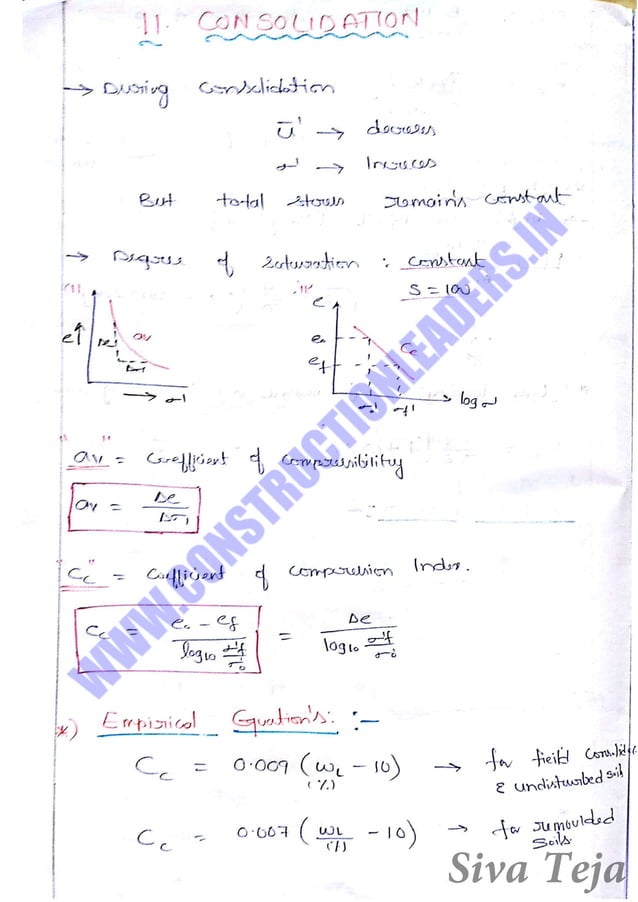 11. CONSOLIDATION
→ During Consolidation
ū' → decreses
σ' → Increces
But total stress remain's constant
→ Degree of Saturation : constant
S = 100
(i)
e↑
Δe
Δσ'
av
→ σ'
ii)
e
e₀
ef
Cc
σ₀'
σf'
log σ'
"av" = Coefficient of compressibility
av = Δe / Δσ'
"Cc" = Coefficient of compression Index.
Cc = e₀ - ef / log10 σ'f/σ'₀ = Δe / log10 σ'f/σ'₀
*) Empirical Equation's :-
Cc = 0.009 (ωL - 10) → for field consolida
(%) & undisturbed soil
Cc = 0.007 (ωL - 10) → for remoulded
(%) soils
WWW.CONSTRUCTIONLEADERS.IN
Siva Teja